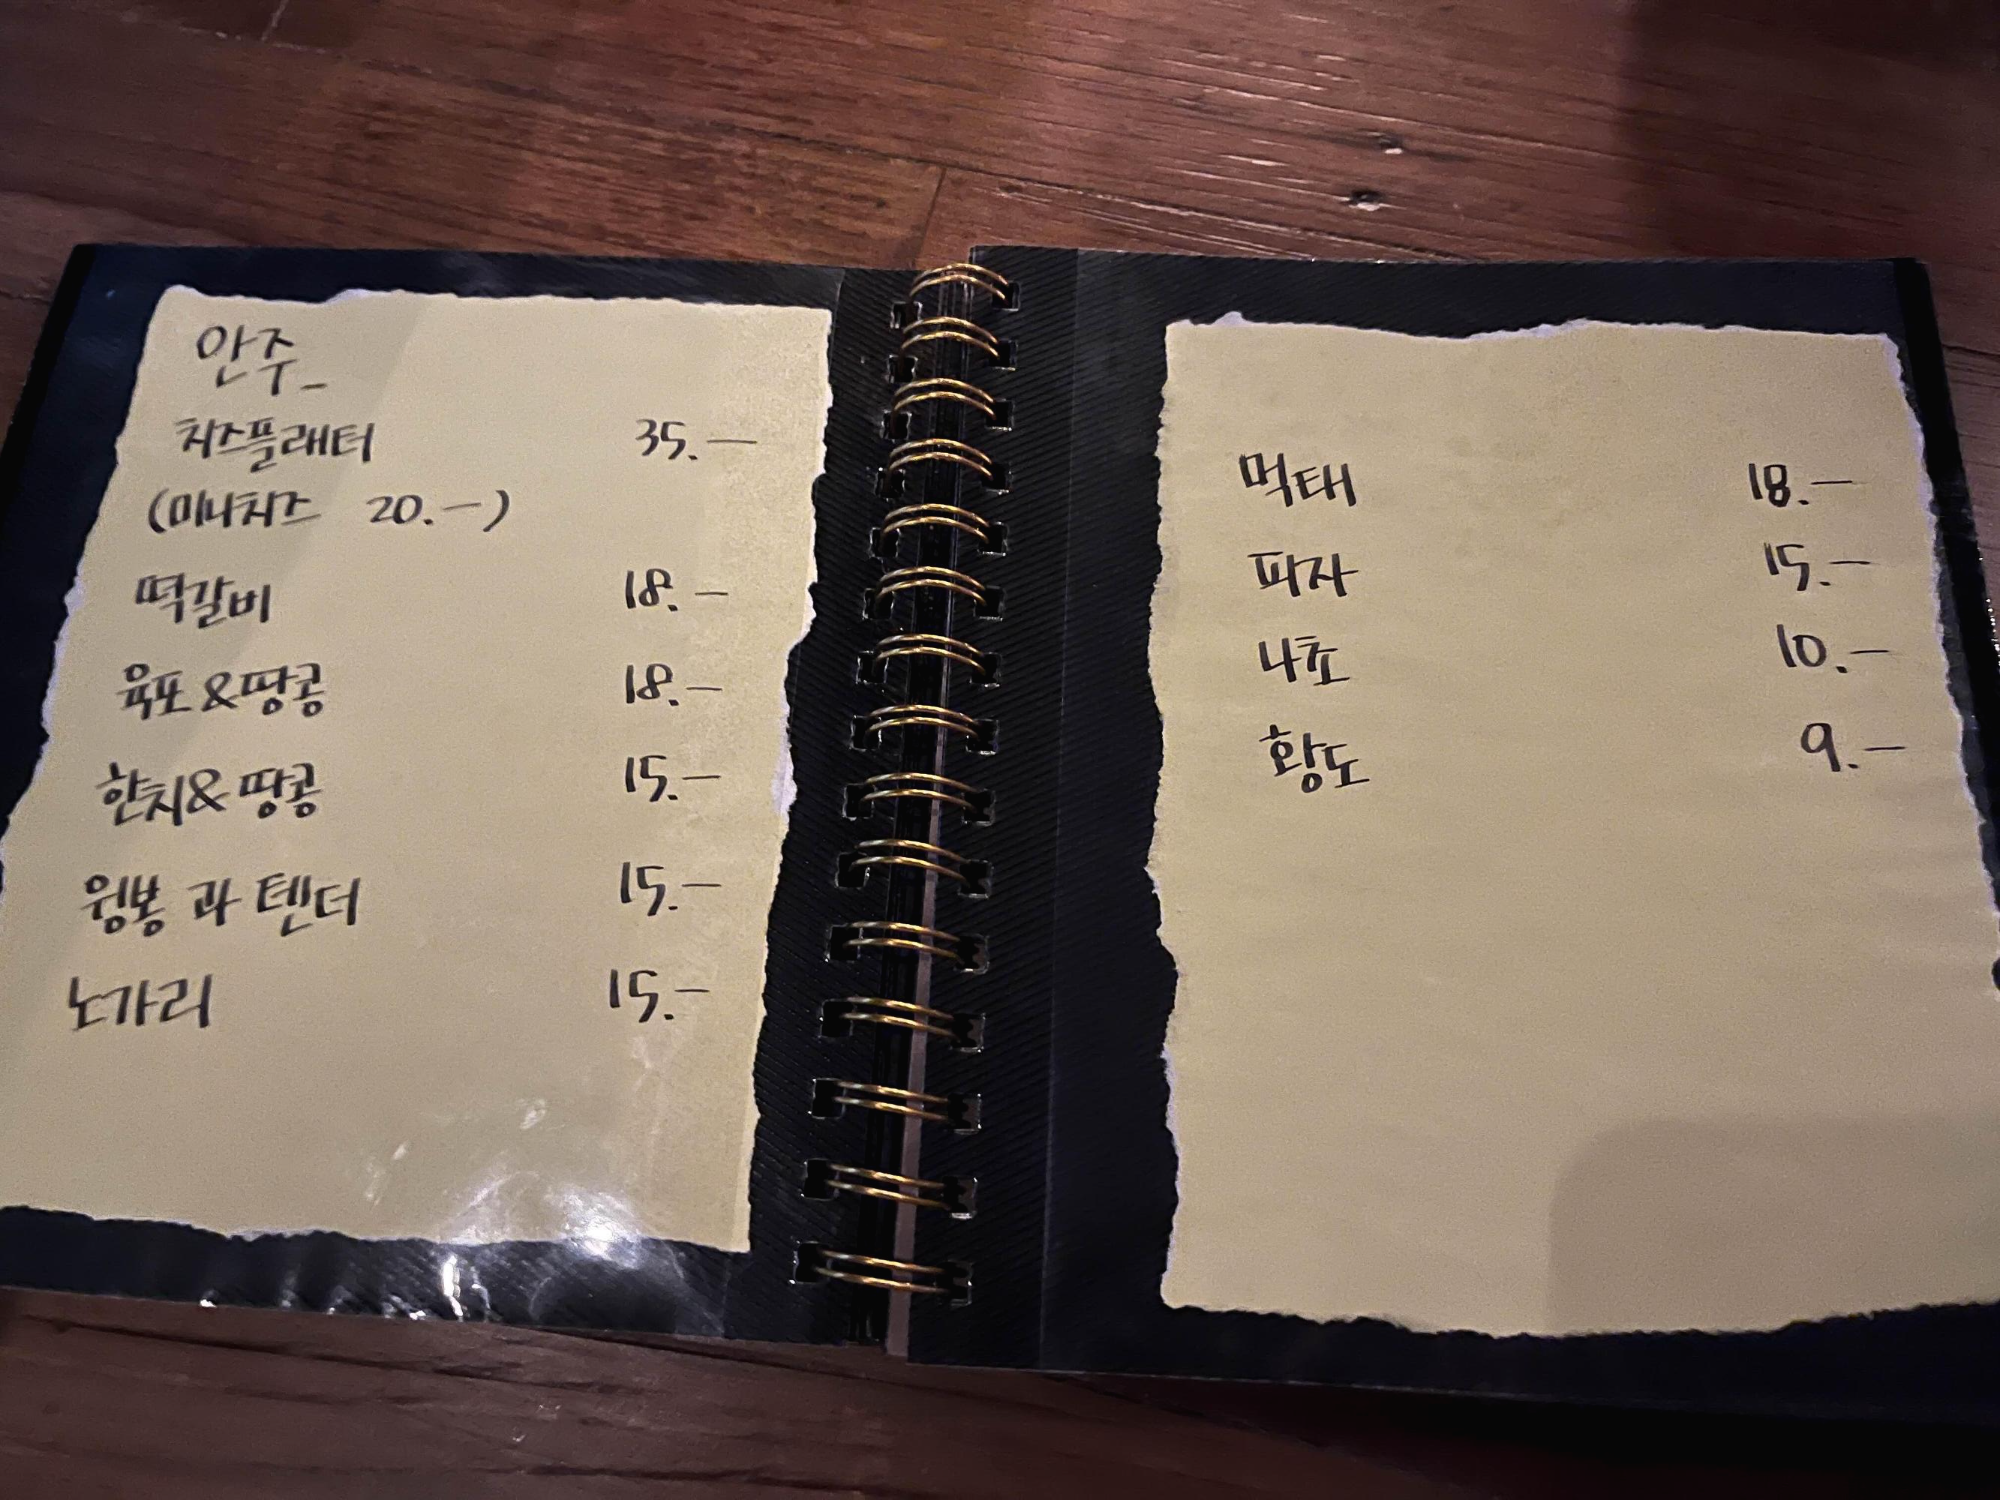 안주_
치즈플래터 35.-
(미니치즈 20.-)
떡갈비 18.-
육포&땅콩 18.-
한치&땅콩 15.-
윙봉 과 텐더 15.-
노가리 15.-
먹태 18.-
피자 15.-
나쵸 10.-
황도 9.-